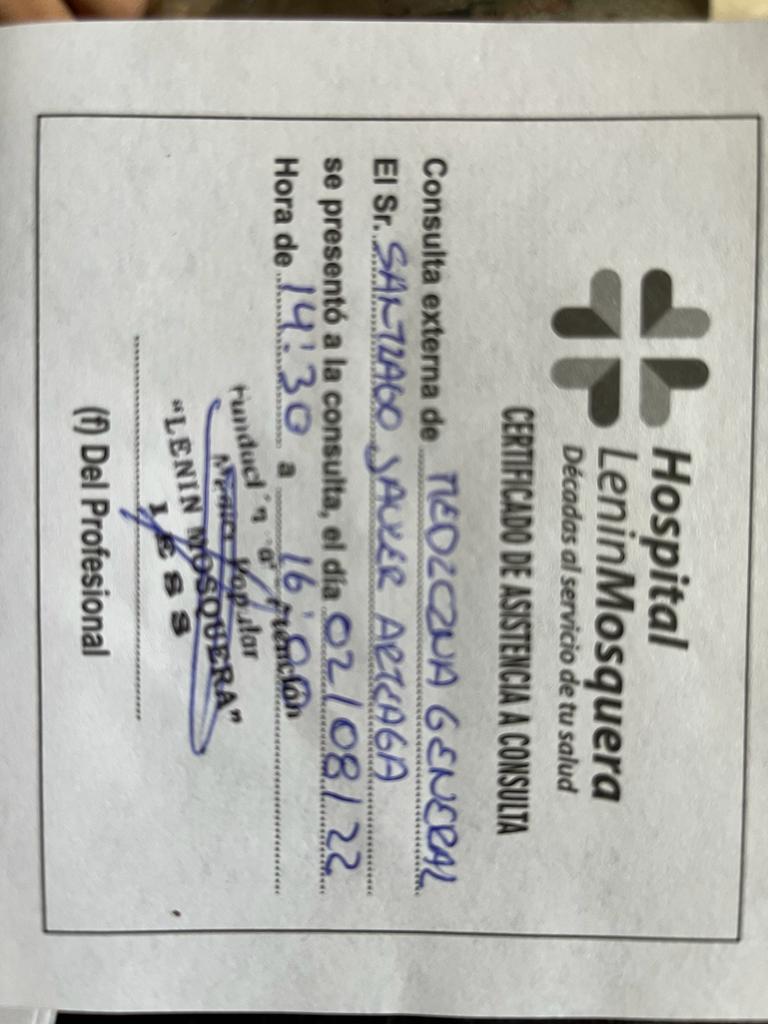 Hospital
LeninMosquera
Décadas al servicio de tu salud
CERTIFICADO DE ASISTENCIA A CONSULTA
Consulta externa de MEDICINA GENERAL
El Sr. SANTIAGO JAVIER ARTEAGA
se presentó a la consulta, el día 02/08/22
Hora de 14:30 a 16:00
Popular
"LENIN MOSQUERA"
IESS
(f) Del Profesional